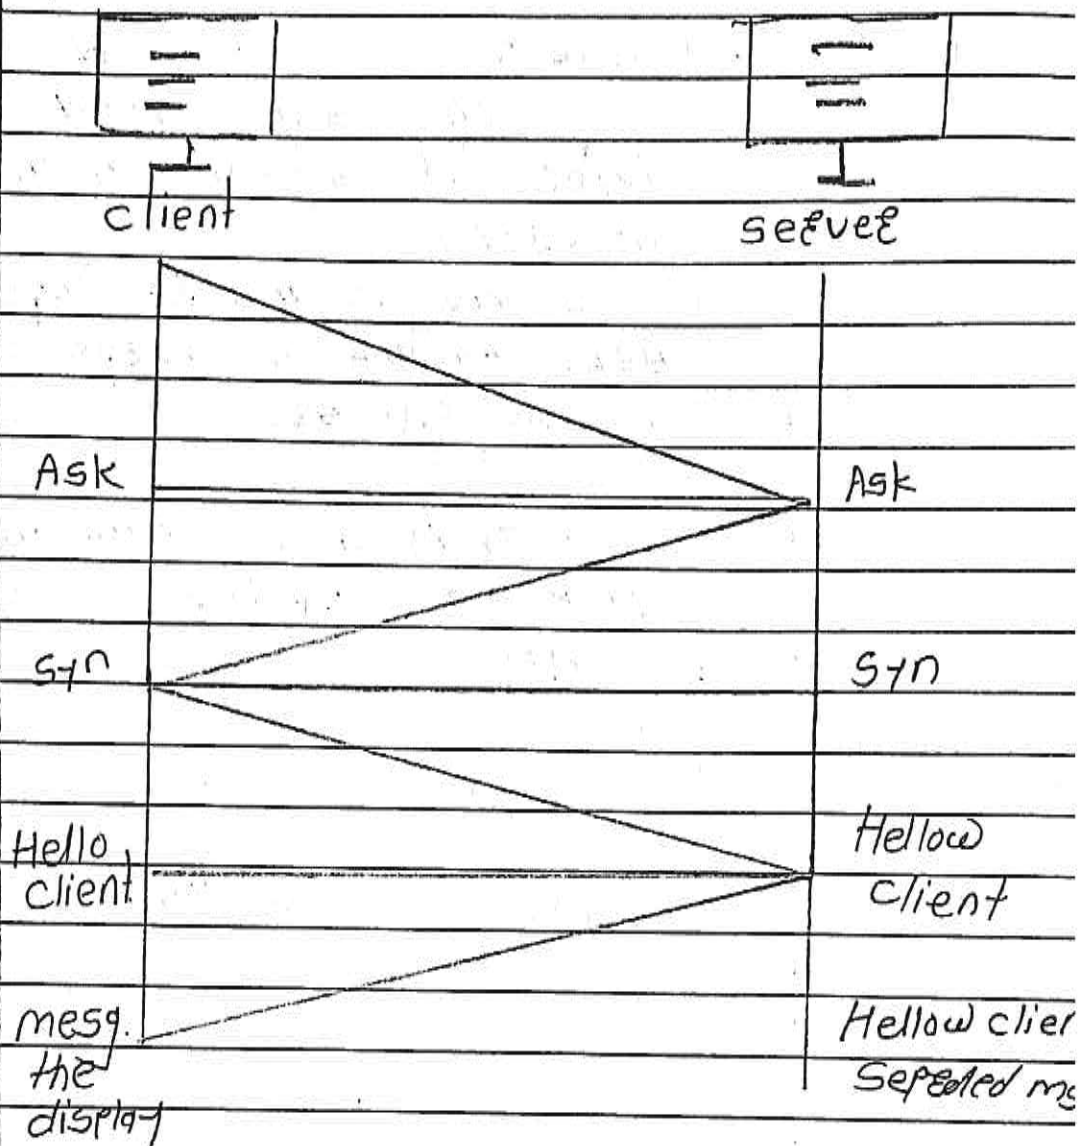 client
server
Ask
Ask
Syn
Syn
Hello
client
Hellow
client
mesg.
the
display
Hellow clien
ms